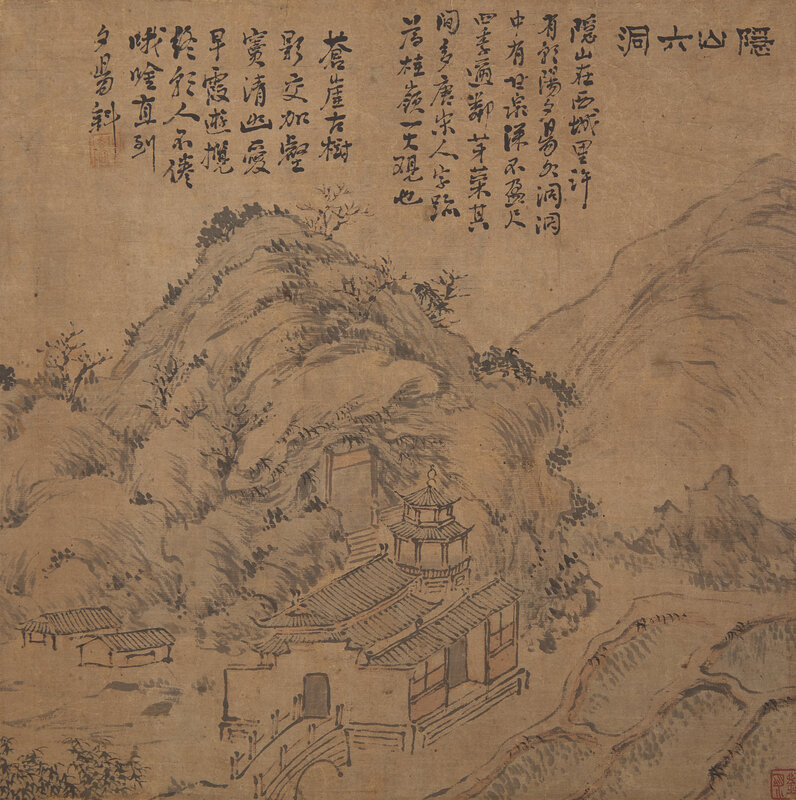 隱山六洞
隱山在西城里許
有朝陽夕昜六洞洞
中有甘泉深不盈尺
四季通鄰芽菜其
間多唐宋人字跡
為桂嶺一大觀也
蒼崖古樹
影交加壑
竇清幽愛
早霞遊攬
終朝人不倦
哦吟直到
夕昜斜